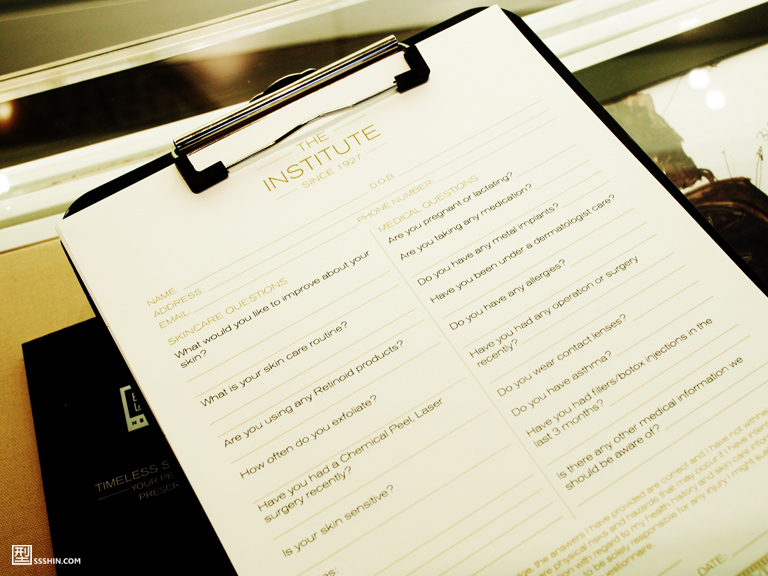 THE
INSTITUTE
SINCE 1927
NAME:
D.O.B:
ADDRESS:
PHONE NUMBER:
EMAIL:
SKINCARE QUESTIONS
What would you like to improve about your
skin?
What is your skin care routine?
Are you using any Retinoid products?
How often do you exfoliate?
Have you had a Chemical Peel, Laser
surgery recently?
Is your skin sensitive?
MEDICAL QUESTIONS
Are you pregnant or lactating?
Are you taking any medication?
Do you have any metal implants?
Have you been under a dermatologist care?
Do you have any allerges?
Have you had any operation or surgery
recently?
Do you wear contact lenses?
Do you have asthma?
Have you had fillers/botox injections in the
last 3 months?
Is there any other medical information we
should be aware of?
the answers I have provided are correct and I have not
physical risks and hazards that may occur if I have
with regard to my health history and skin
to be solely responsible for any injury I might
DATE:
TIMELESS S
YOUR PE
PRESCR
型 SSSHIN.COM